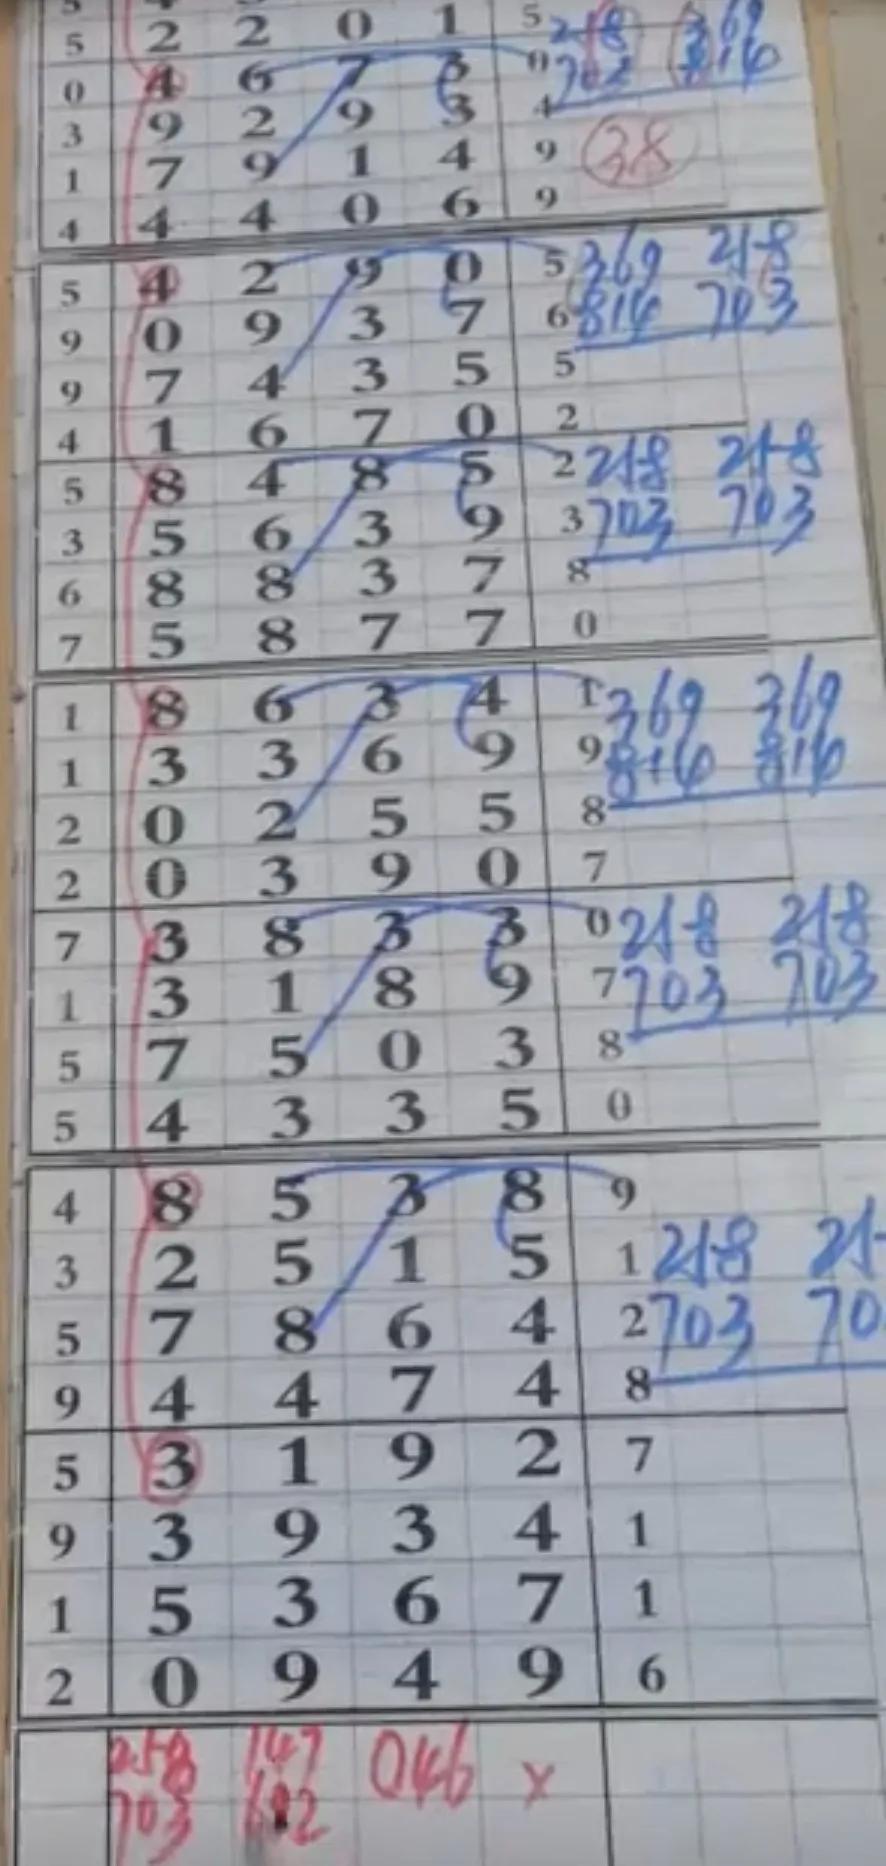 5 2 2 0 1 5 258 369
0 4 6 7 3 0 703 814
3 9 2 9 3 4
1 7 9 1 4 9 38
4 4 4 0 6 9
5 4 2 9 0 5 369 258
9 0 9 3 7 6 814 703
9 7 4 3 5 5
4 1 6 7 0 2
5 8 4 8 5 2 258 258
3 5 6 3 9 3 703 703
6 8 8 3 7 8
7 5 8 7 7 0
1 8 6 3 4 1 369 369
1 3 3 6 9 9 814 814
2 0 2 5 5 8
2 0 3 9 0 7
7 3 8 3 3 0 258 258
1 3 1 8 9 7 703 703
5 7 5 0 3 8
5 4 3 3 5 0
4 8 5 3 8 9
3 2 5 1 5 1 258 25
5 7 8 6 4 2 703 70
9 4 4 7 4 8
5 3 1 9 2 7
9 3 9 3 4 1
1 5 3 6 7 1
2 0 9 4 9 6
258 147 046 x
703 692